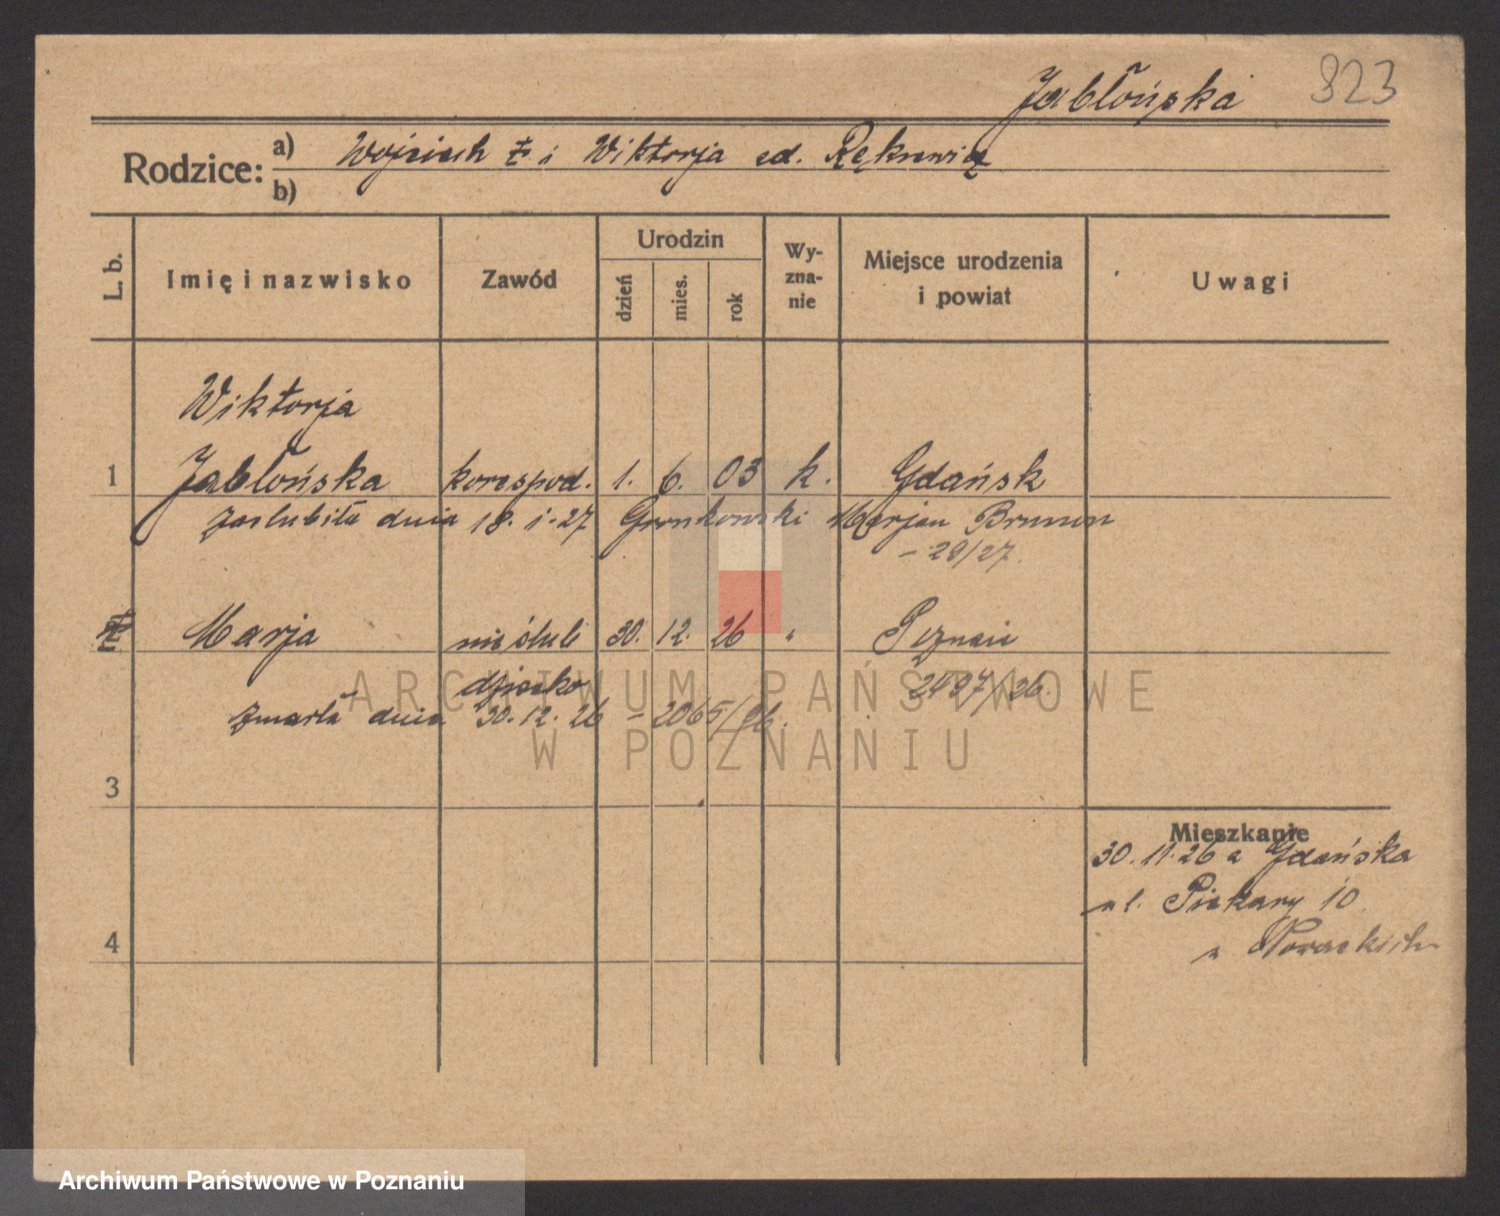 Jabłońska 823
Rodzice: a) Wojciech i Wiktorja
b)
L. b. Imię i nazwisko Zawód Urodzin dzień mies. rok Wyznanie Miejsce urodzenia i powiat Uwagi
Wiktorja
1 Jabłońska korespod. 1. 6. 03 k. Gdańsk
zaślubiła dnia 18. 1. 27 Marjan Brunon
- 29/27.
Marja nieślub 30. 12. 26 " Poznań
dziecko 2497/26.
zmarła dnia 30.12.26 - 2065/26.
3
Mieszkanie
30.11.26 z Gdańska
ul. Piekary 10
4
u Nowackich
ARCHIWUM PAŃSTWOWE
W POZNANIU
Archiwum Państwowe w Poznaniu